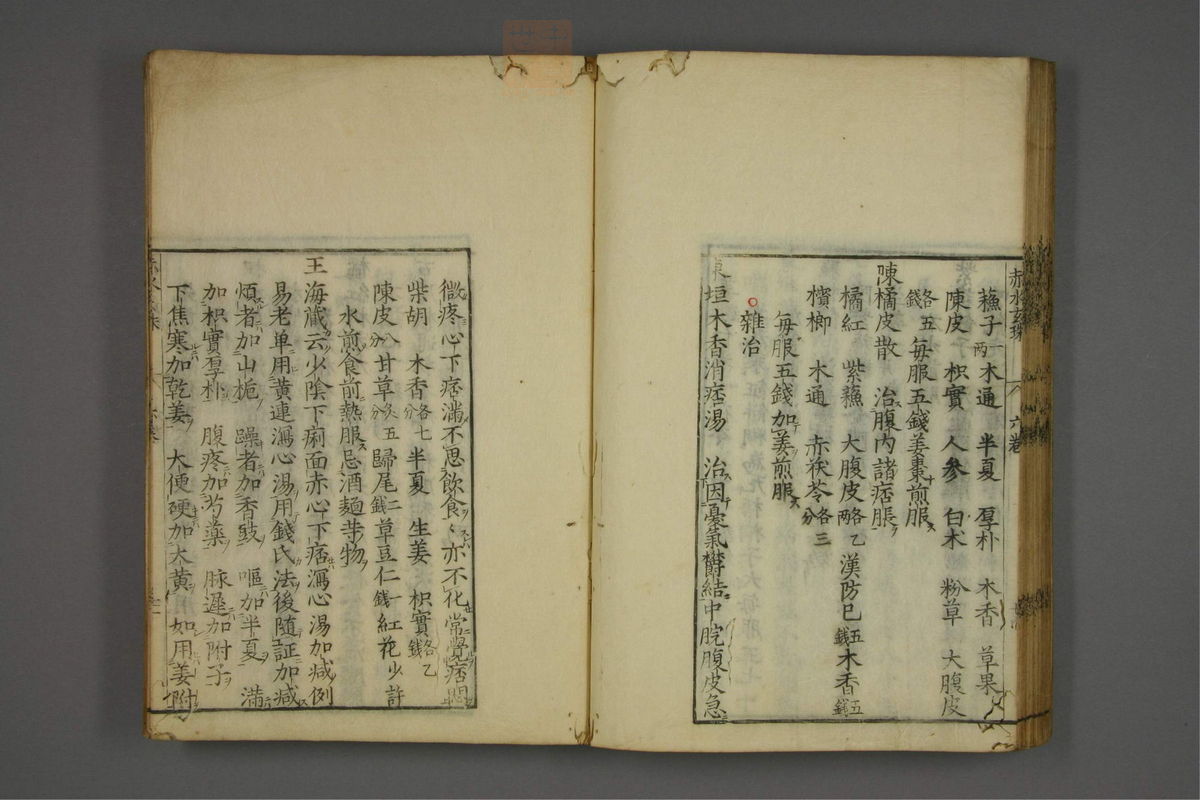 赤水玄珠 六卷
蘓子一两木通 半夏 厚朴 木香 草果
陳皮 枳實 人參 白朮 粉草 大腹皮
各五錢每服五錢姜棗煎服
陳橘皮散 治腹內諸痞脹
橘紅 紫蘓 大腹皮各乙两漢防巳五錢木香五錢
檳榔 木通 赤茯苓各三分
每服五錢加姜煎服
雜治
東垣木香消痞湯 治因憂氣欝結中脘腹皮急
微疼心下痞滿不思飲食〻亦不化常覺痞悶
柴胡 木香各七分 半夏 生姜 枳實各乙錢
陳皮八分甘草炙五分歸尾二錢草豆仁一錢紅花少許
水煎食前熱服忌酒麵等物
王海藏云少陰下痢面赤心下痞瀉心湯加减例
易老单用黄連瀉心湯用錢氏法後隨証加减
煩者加山梔 躁者加香豉 嘔加半夏 滿
加枳實厚朴 腹疼加芍藥 脉遲加附子
下焦寒加乾姜 大便硬加大黄 如用姜附